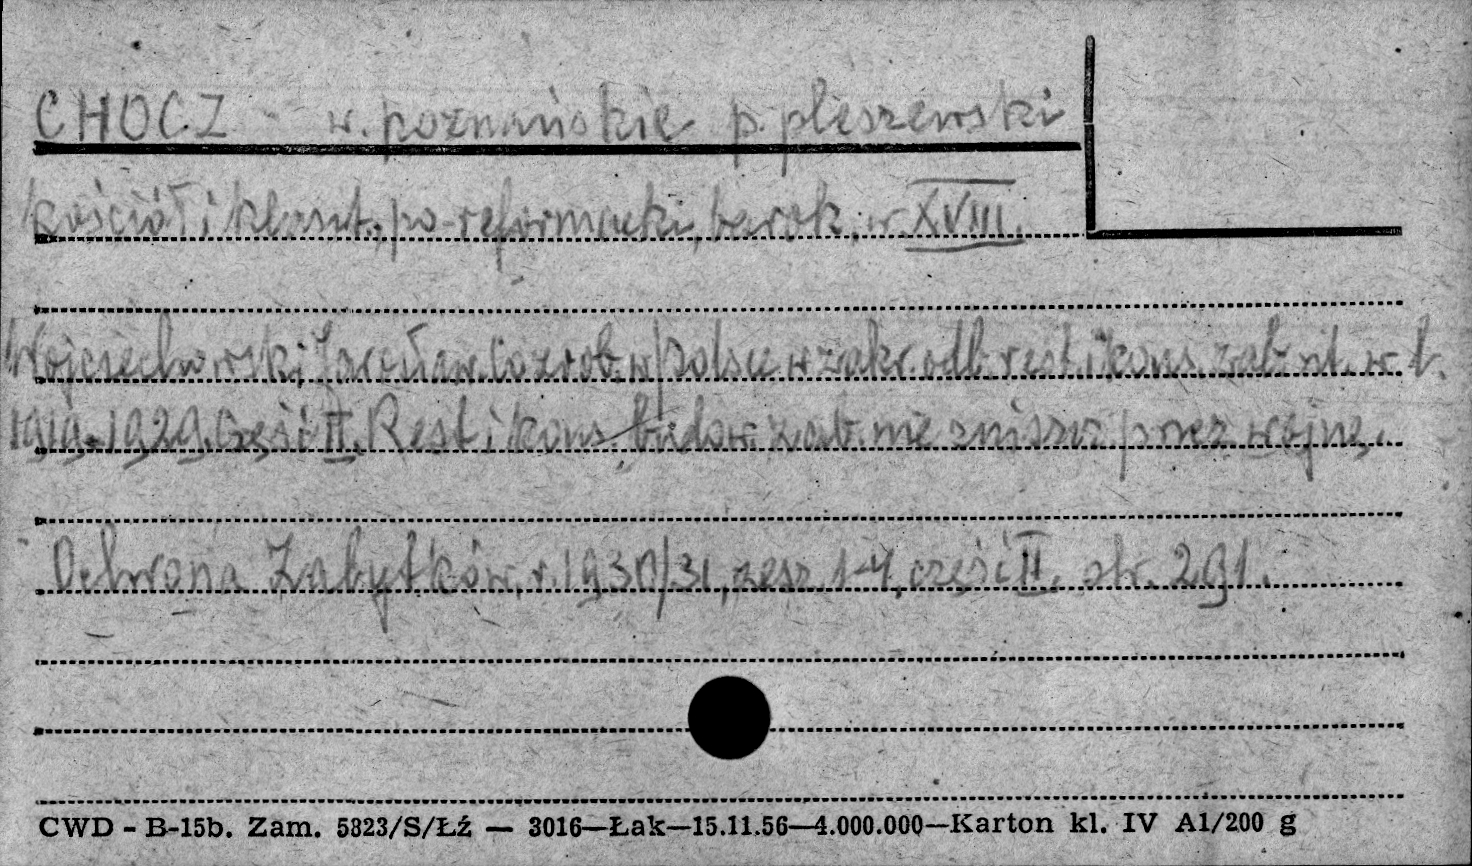 CHOCZ - w. poznańskie p. pleszewski
kościół i klaszt. po-reformacki, barok, w. XVIII.
Wojciechowski Jarosław. Co zrob. w Polsce w zakr. odb. rest. i kons. zab. szt. w l.
1919-1929. Część II. Rest. i kons. budow. zab. nie zniszcz przez wojnę.
Ochrona Zabytków, r. 1930/31, zesz. 1-4, część II. str. 291.
CWD - B-15b. Zam. 5823/S/Łź — 3016—Łak—15.11.56—4.000.000—Karton kl. IV A1/200 g